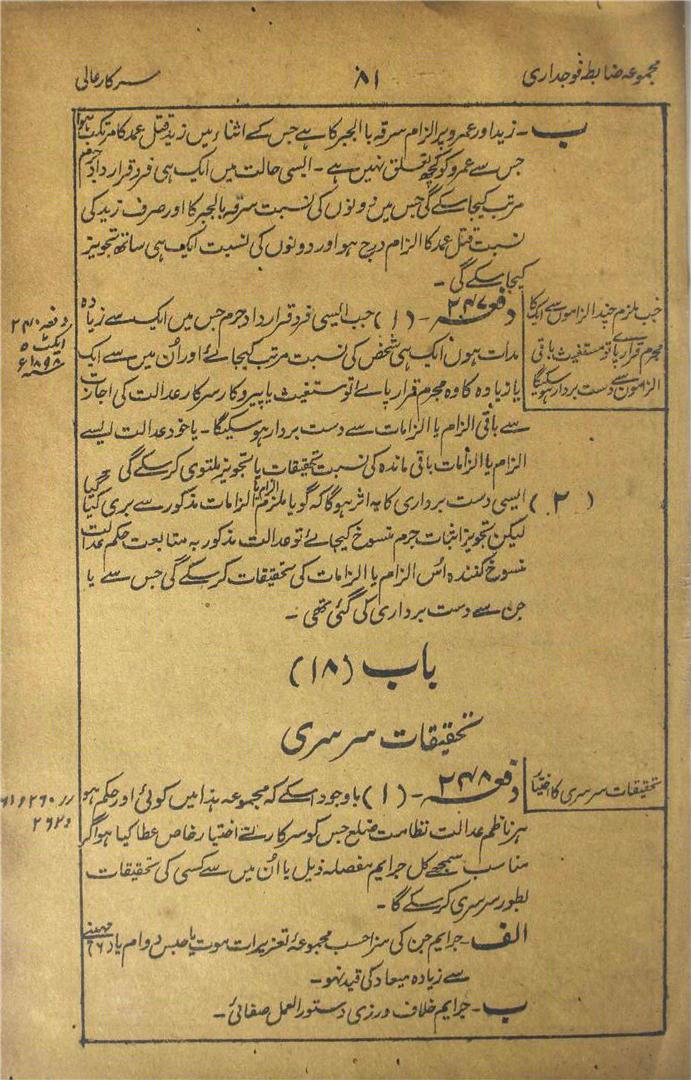 مجموعہ ضابطہ فوجداری
۸۱
سرکار عالی
ب ۔ زید اور عمرو پر الزام سرقہ بالجبر کا ہے جس کے اثناء میں زید قتل عمد کا مرتکب ہوا
جس سے عمرو کو کچھ تعلق نہیں ہے ۔ ایسی حالت میں ایک ہی فرد قرار داد جرم
مرتب کیجا سکے گی جس میں دونوں کی نسبت سرقہ بالجبر کا اور صرف زید کی
نسبت قتل عمد کا الزام درج ہو اور دونوں کی نسبت ایک ہی ساتھ تجویز
کیجا سکے گی ۔
جب ملزم چند الزاموں سے ایک کا
مجرم قرار پائے تو مستغیث باقی
الزاموں سے دست بردار ہو سکیگا
دفعہ ۲۴۷ ۔ (۱) جب ایسی فرد قرار داد جرم جس میں ایک سے زیادہ
مدات ہوں ایک ہی شخص کی نسبت مرتب کیجائے اور اُن میں سے ایک
یا زیادہ کا وہ مجرم قرار پائے تو مستغیث یا پیروکار سرکار عدالت کی اجازت
سے باقی الزام یا الزامات سے دست بردار ہو سکیگا ۔ یا خود عدالت ایسے
الزام یا الزامات باقی ماندہ کی نسبت تحقیقات یا تجویز ملتوی کر سکے گی
دفعہ ۲۴۰
ایکٹ ۵
۱۸۹۸ء
(۲) ایسی دست برداری کا یہ اثر ہوگا کہ گویا ملزم الزام یا الزامات مذکور سے بری کیا گیا
لیکن تجویز اثبات جرم منسوخ کیجائے تو عدالت مذکور بہ متابعت حکم عدالت
منسوخ کنندہ اُس الزام یا الزامات کی تحقیقات کر سکے گی جس سے یا
جن سے دست برداری کی گئی تھی ۔
باب (۱۸)
تحقیقات سرسری
تحقیقات سرسری کا اختیار
دفعہ ۲۴۸ ۔ (۱) باوجود اسکے کہ مجموعہ ہذا میں کوئی اور حکم ہو
ہر ناظم عدالت نظامت ضلع جس کو سرکار نے اختیار خاص عطا کیا ہو اگر
مناسب سمجھے کل جرایم مفصلہ ذیل یا اُن میں سے کسی کی تحقیقات
بطور سرسری کر سکے گا ۔
رر ۲۶۰ و ۲۶۱
و ۲۶۲
الف ۔ جرایم جن کی سزا حسب مجموعۂ تعزیرات موت یا حبس دوام یا (۶) مہینے
سے زیادہ میعاد کی قید نہو ۔
ب ۔ جرایم خلاف ورزی دستور العمل صفائی ۔